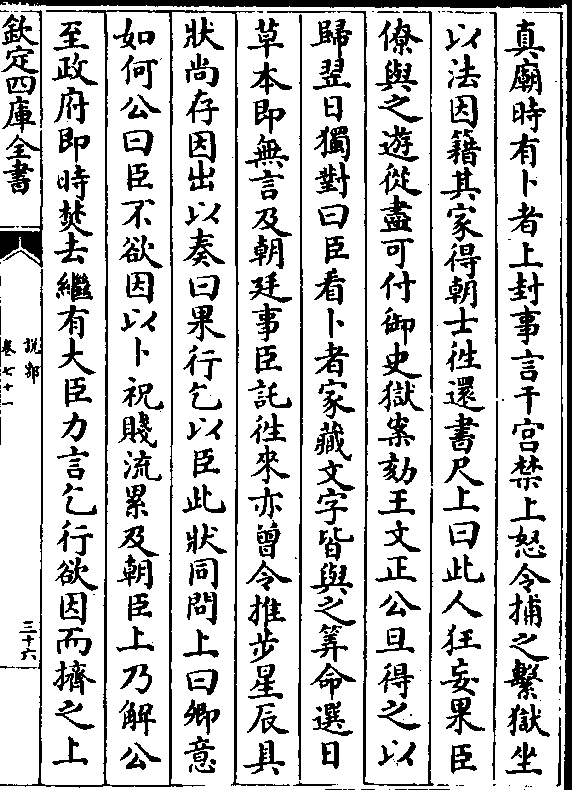 真廟時有卜者上封事言干宫禁上怒令捕之繫獄坐
以法因籍其家得朝士徃還書尺上曰此人狂妄果臣
僚與之遊從盡可付御史獄案劾王文正公旦得之以
歸翌日獨對曰臣看卜者家藏文字皆與之筭命選日
草本即無言及朝廷事臣託徃來亦曾令推步星辰具
狀尚存因出以奏曰果行乞以臣此狀同問上曰卿意
如何公曰臣不欲因以卜祝賤流累及朝臣上乃解公
至政府即時焚去繼有大臣力言乞行欲因而擠之上
欽定四庫全書
說郛
卷七十一
三十六